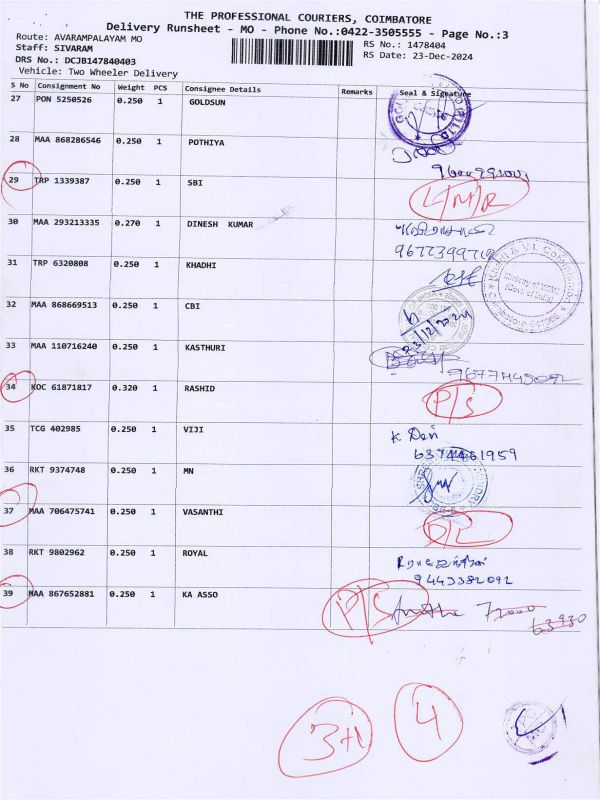 THE PROFESSIONAL COURIERS, COIMBATORE
Delivery Runsheet - MO - Phone No.:0422-3505555 - Page No.:3
Route: AVARAMPALAYAM MO
Staff: SIVARAM
RS No.: 1478404
DRS No.: DCJB147840403
RS Date: 23-Dec-2024
Vehicle: Two Wheeler Delivery
S No Consignment No Weight PCS Consignee Details Remarks Seal & Signature
27 PON 5250526 0.250 1 GOLDSUN
28 MAA 868286546 0.250 1 POTHIYA
29 TRP 1339387 0.250 1 SBI
30 MAA 293213335 0.270 1 DINESH KUMAR
31 TRP 6320808 0.250 1 KHADHI
Ministry of MSME
(Govt of India)
32 MAA 868669513 0.250 1 CBI
23/12/2024
33 MAA 110716240 0.250 1 KASTHURI
34 KOC 61871817 0.320 1 RASHID P/S
35 TCG 402985 0.250 1 VIJI K. Devi
6374461959
36 RKT 9374748 0.250 1 MN
37 MAA 706475741 0.250 1 VASANTHI D/L
38 RKT 9802962 0.250 1 ROYAL
9443382092
39 MAA 867652881 0.250 1 KA ASSO P/S
63930
3+1 4